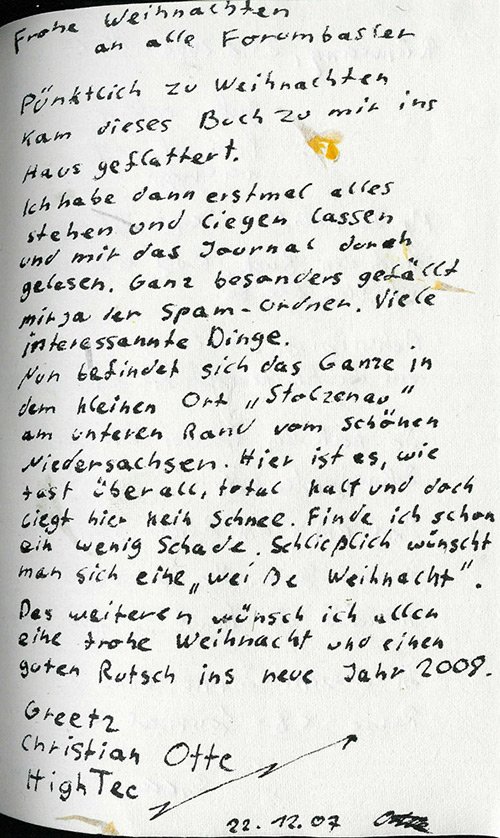 Frohe Weihnachten
an alle Forumbasler
Pünktlich zu Weihnachten
kam dieses Buch zu mir ins
Haus geflattert.
Ich habe dann erstmal alles
stehen und liegen lassen
und mir das Journal durch
gelesen. Ganz besonders gefällt
mir ja der Spam-Ordner. Viele
interessannte Dinge.
Nun befindet sich das Ganze in
dem kleinen Ort „Stolzenau"
am unteren Rand vom schönen
Niedersachsen. Hier ist es, wie
fast überall, total kalt und doch
liegt hier kein Schnee. Finde ich schon
ein wenig Schade. Schließlich wünscht
man sich eine „weiße Weihnacht".
Des weiteren wünsch ich allen
eine frohe Weihnacht und einen
guten Rutsch ins neue Jahr 2008.
Greetz
Christian Otte
HighTec
22.12.07